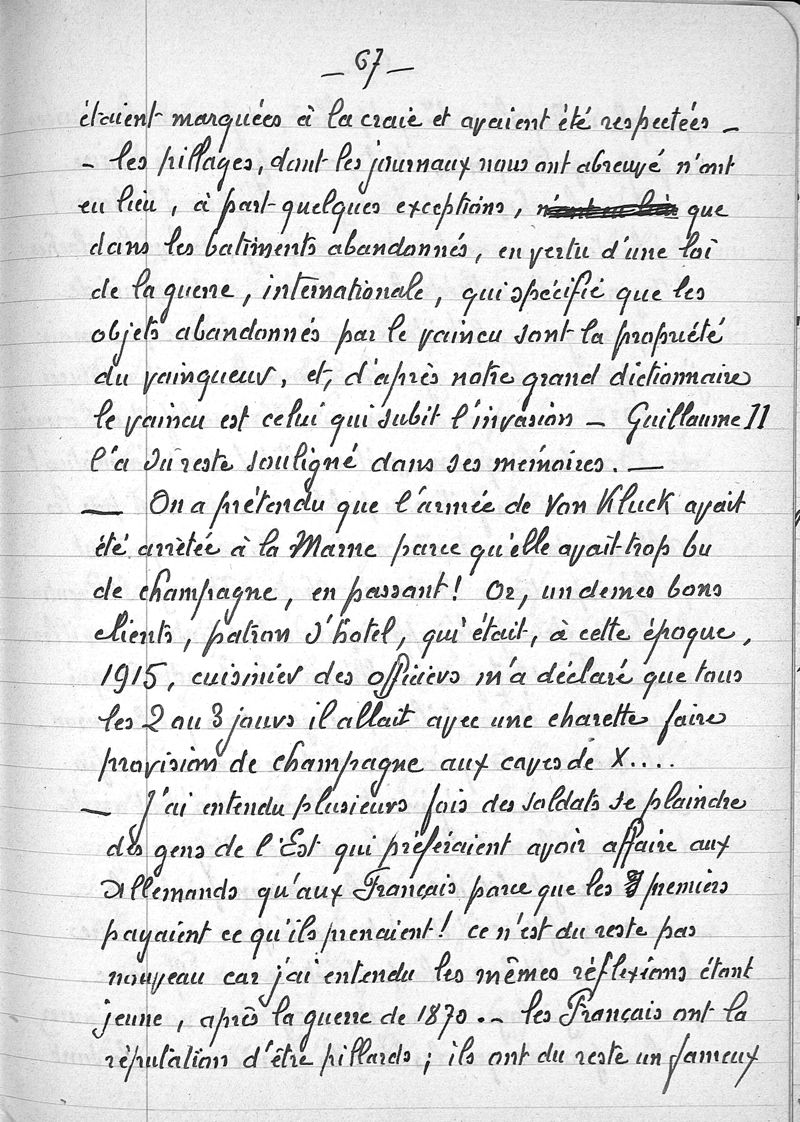 — 67 —
étaient marquées à la craie et avaient été respectées —
- les pillages, dont les journaux nous ont abreuvé n'ont
eu lieu, à part quelques exceptions, n'ont eu lieu que
dans les batiments abandonnés, en vertu d'une loi
de la guerre, internationale, qui spécifie que les
objets abandonnés par le vaincu sont la propriété
du vainqueur, et, d'après notre grand dictionnaire
le vaincu est celui qui subit l'invasion — Guillaume II
l'a du reste souligné dans ses memoires. —
— On a prétendu que l'armée de Von Kluck avait
été arrètée à la Marne parce qu'elle avait trop bu
de champagne, en passant! Or, un de mes bons
clients, patron d'hôtel, qui était, à cette époque,
1915, cuisinier des officiers m'a déclaré que tous
les 2 ou 3 jours il allait avec une charette faire
provision de champagne aux caves de X....
— J'ai entendu plusieurs fois des soldats se plaindre
des gens de l'Est qui préféraient avoir affaire aux
Allemands qu'aux Français parce que les premiers
payaient ce qu'ils prenaient! ce n'est du reste pas
nouveau car j'ai entendu les mêmes réflexions étant
jeune, après la guerre de 1870. — les Français ont la
réputation d'être pillards; ils ont du reste un fameux